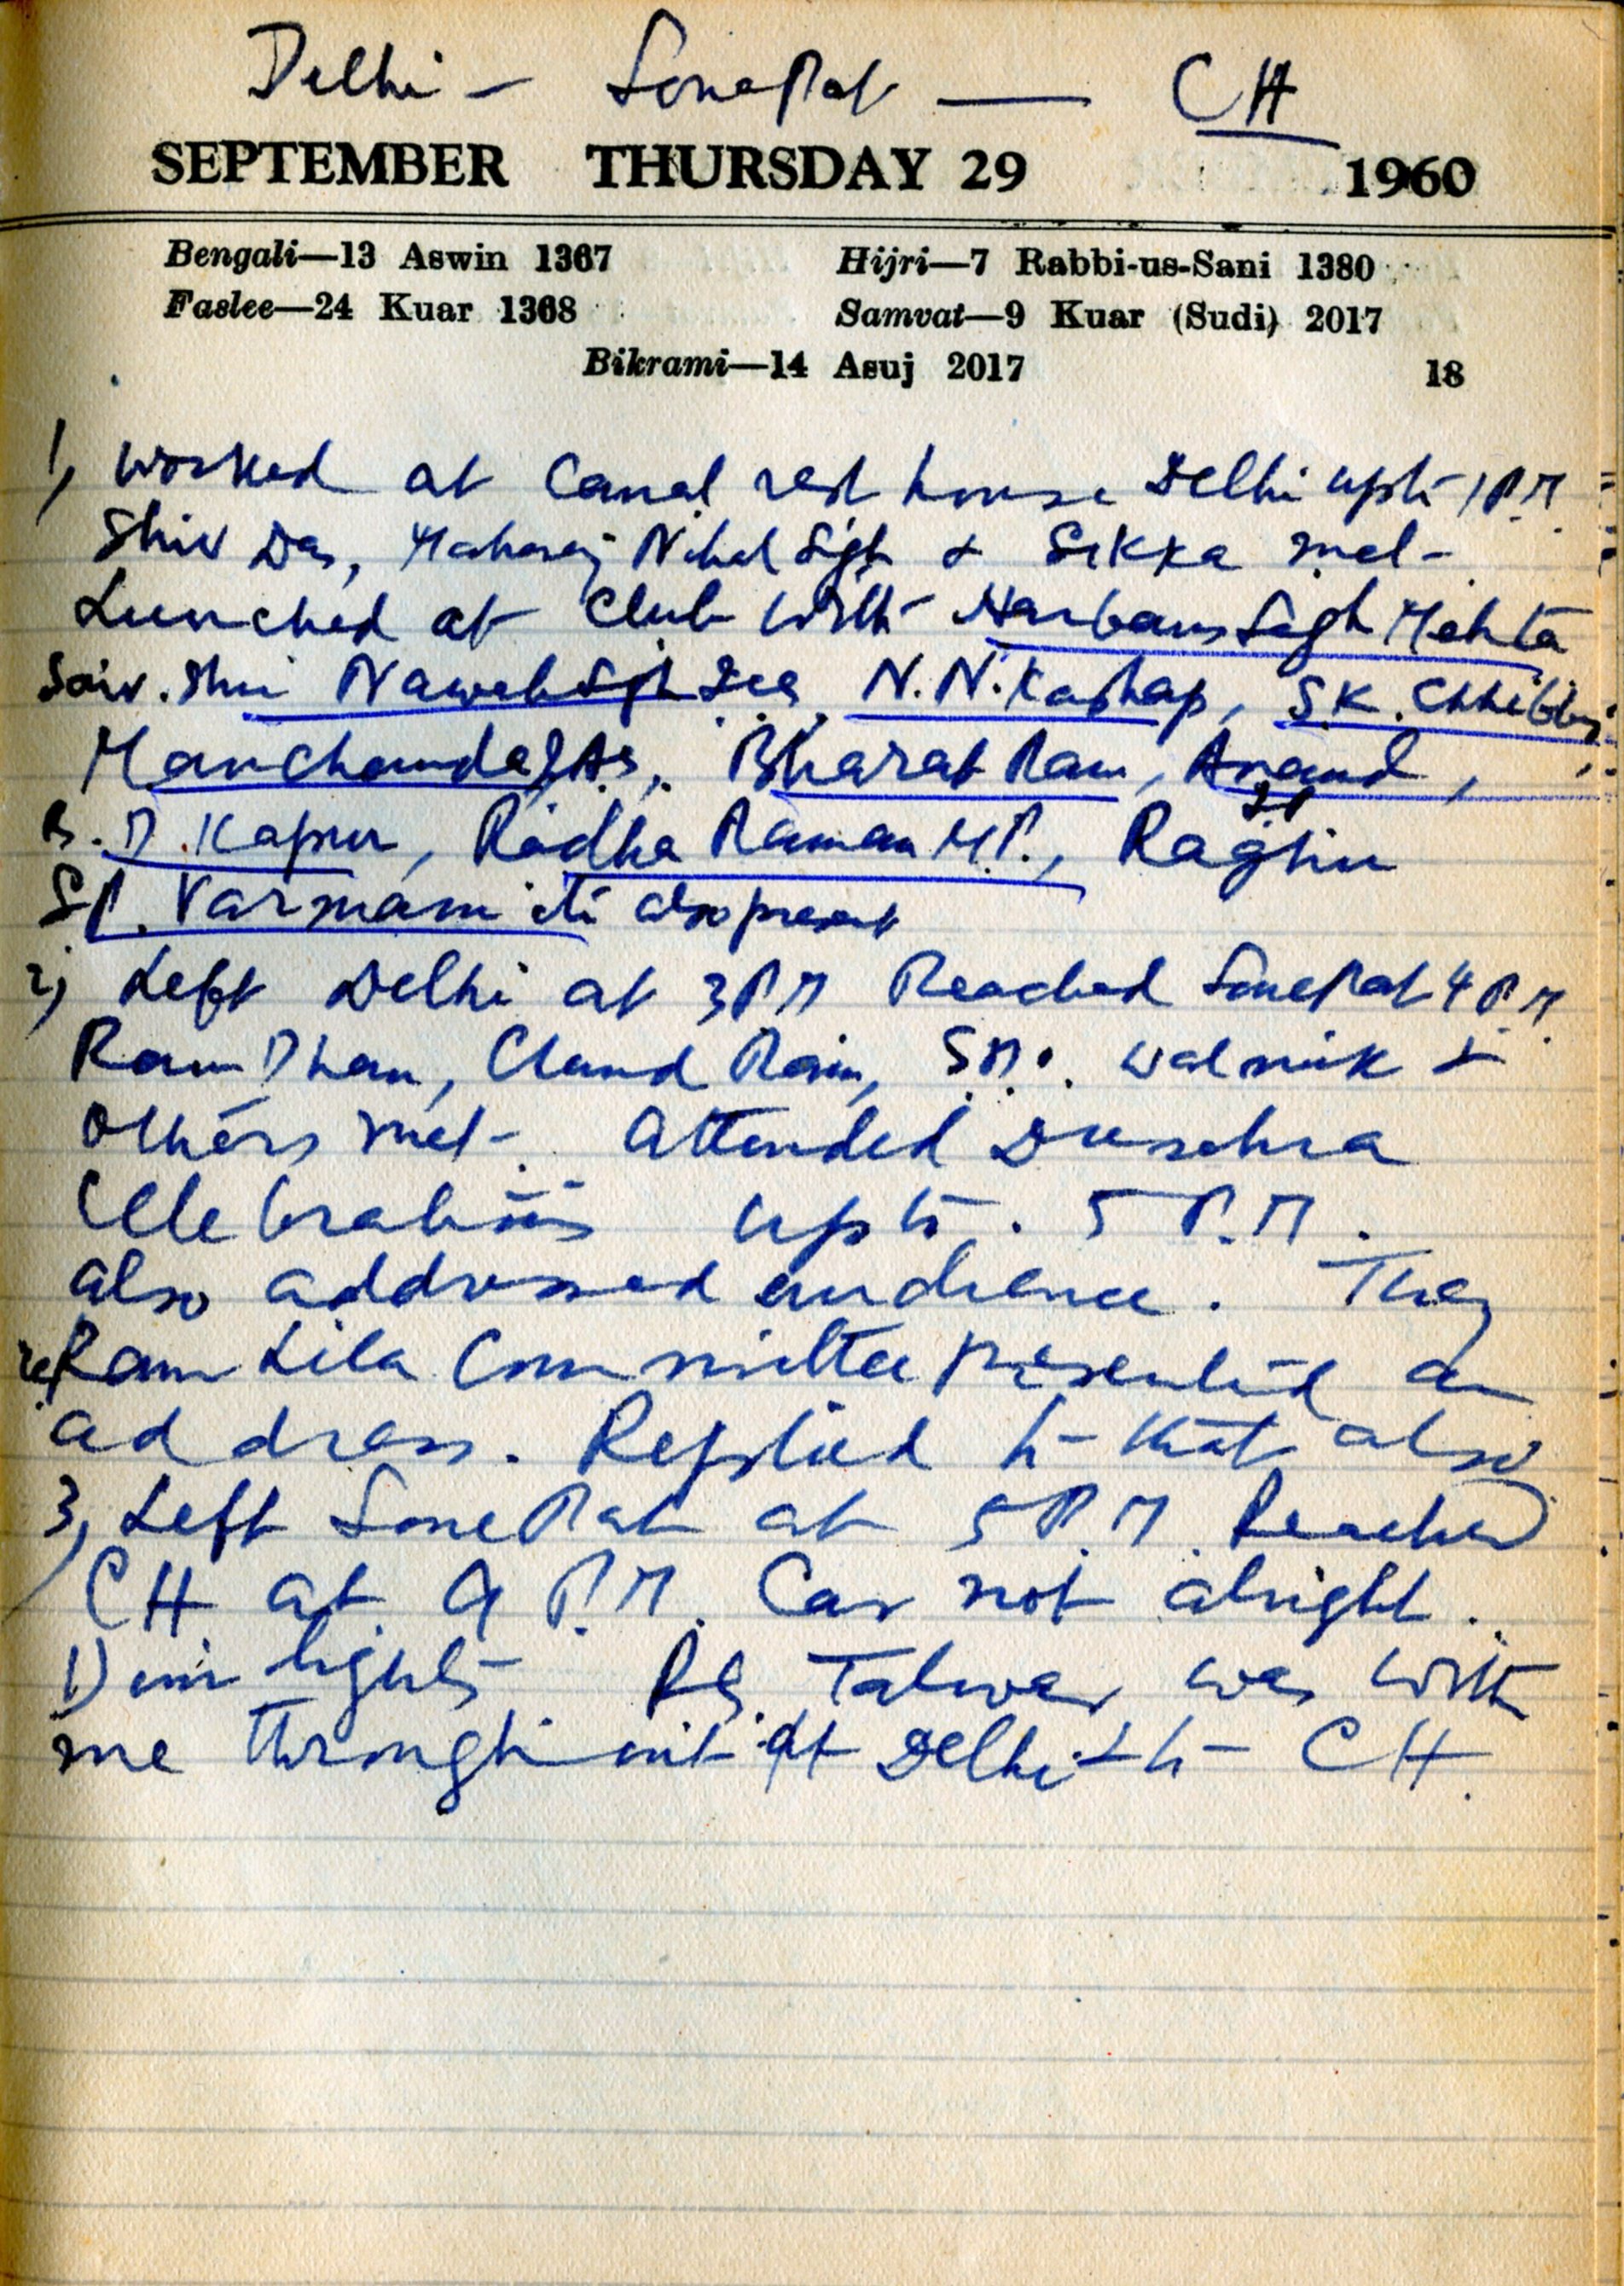 Delhi — Sonepat — CH
SEPTEMBER THURSDAY 29 1960
Bengali—13 Aswin 1367 Hijri—7 Rabbi-us-Sani 1380
Faslee—24 Kuar 1368 Samvat—9 Kuar (Sudi) 2017
Bikrami—14 Asuj 2017 18
1) Worked at Canal rest house Delhi upto 1 P.M
Shiv Das, Maharaj Nihal Sigh & Sikka met-
Lunched at Club with Harbans Sigh Mehta
Nawab Sigh N.N. Kashap, S.K. Chhibber
Manchanda IAS, Bharat Ram, Anand,
Kapur, Radha Raman M.P., Raghu
S.P. Varmani etc also present
2) Left Delhi at 3 P M Reached Sonepat 4 P.M.
Ram Dhan, Chand Ram, Walmik &
Others met-. Attended Dusehra
Celebrations upto. 5 P.M.
also addressed audience. They
Ram Lila Committee presented an
address. Replied to that also
3) Left Sonepat at 5 P.M. Reached
CH at 9 P.M. Car not alright.
Dim lights Talwar was with
me throughout at Delhi & to CH.